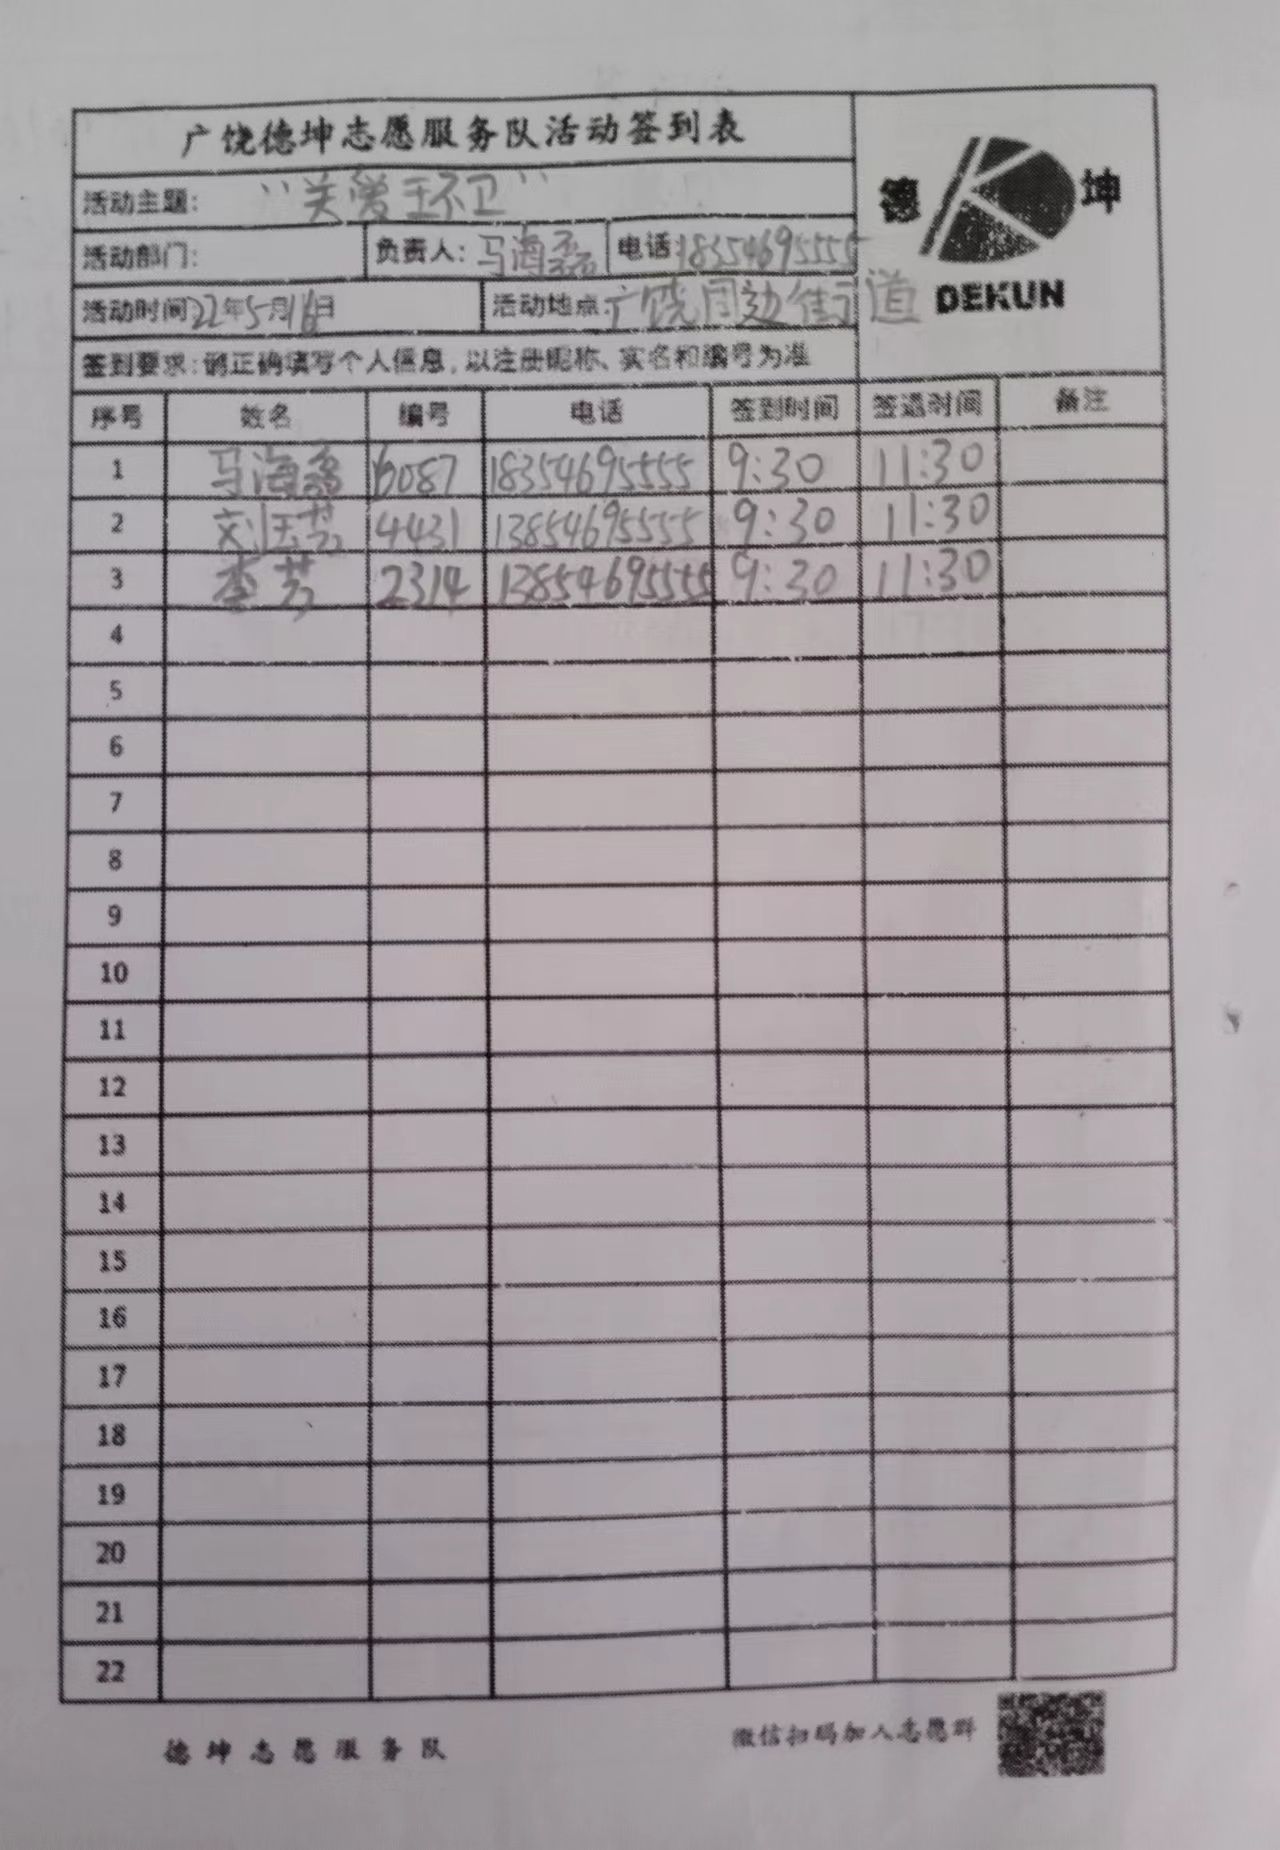 广饶德坤志愿服务队活动签到表
德 坤
DEKUN
活动主题: “关爱环卫”
活动部门: 负责人: 马海磊 电话:18354695555
活动时间22年5月16日 活动地点:广饶周边街道
签到要求:请正确填写个人信息,以注册昵称、实名和编号为准
序号 姓名 编号 电话 签到时间 签退时间 备注
1 马海磊 6087 18354695555 9:30 11:30
2 刘 芸 4431 13854695555 9:30 11:30
3 李芳 2314 13854695555 9:30 11:30
4
5
6
7
8
9
10
11
12
13
14
15
16
17
18
19
20
21
22
德坤志愿服务队
微信扫码加入志愿群